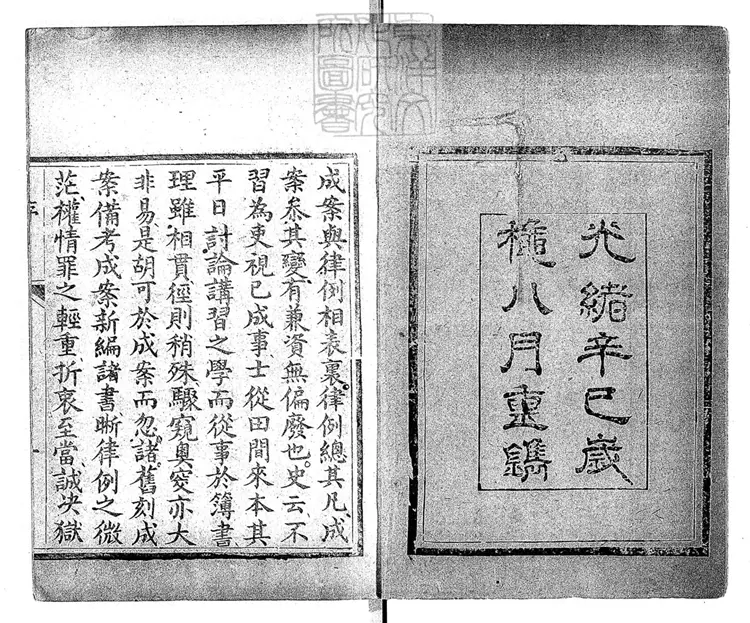 東洋文
化研究
所圖書
光緒辛巳歲
穐八月重鐫
成案與律例相表裏、律例總其凡、成
案叅其變、有兼資無偏廢也。史云、不
習為吏、視已成事、士從田間來、本其
平日討論講習之學、而從事於簿書、
理雖相貫、徑則稍殊、驟窺奧窔、亦大
非易、是胡可於成案而忽諸、舊刻成
案備考成案新編諸書、晰律例之微
茫、權情罪之輕重、折衷至當、誠决獄
序